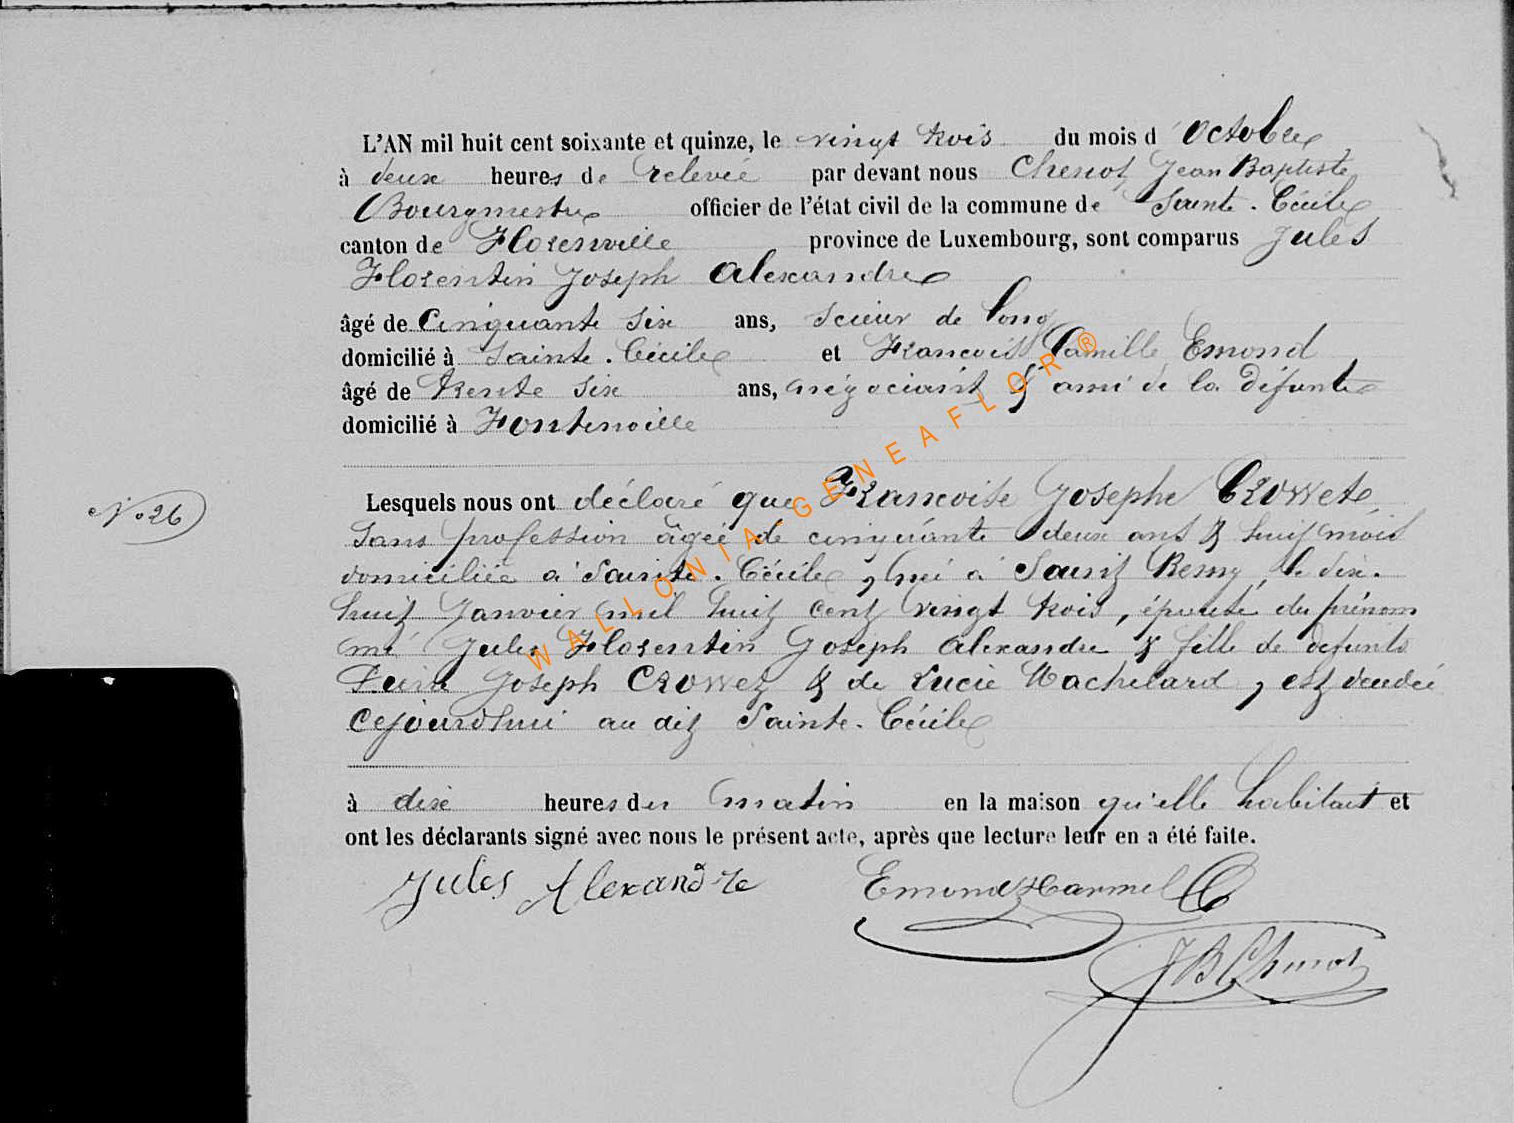 L'AN mil huit cent soixante et quinze, le vingt trois du mois d'Octobre
à deux heures de relevée par devant nous Chenot Jean Baptiste
Bourgmestre officier de l'état civil de la commune de Sainte-Cécile
canton de Florenville province de Luxembourg, sont comparus Jules
Florentin Joseph Alexandre
âgé de Cinquante six ans, scieur de long
domicilié à Sainte-Cécile et François Camille Emond
âgé de trente six ans, négociant & ami de la défunte
domicilié à Fontenoille
N° 26
Lesquels nous ont déclaré que Françoise Josephe Crowet
Sans profession âgée de cinquante deux ans & huit mois
domiciliée à Sainte-Cécile, née à Saint Remy, le dix-
huit Janvier mil huit cent vingt trois, épouse du prénom
mé Jules Florentin Joseph Alexandre & fille de defunts
Joseph Crowez & de Lucie Machelard, est décédée
cejourd'hui au dit Sainte-Cécile
à dix heures du matin en la maison qu'elle habitait et
ont les déclarants signé avec nous le présent acte, après que lecture leur en a été faite.
Jules Alexandre Emond
JB Chenot
WALLONIA GENEAFLOR®